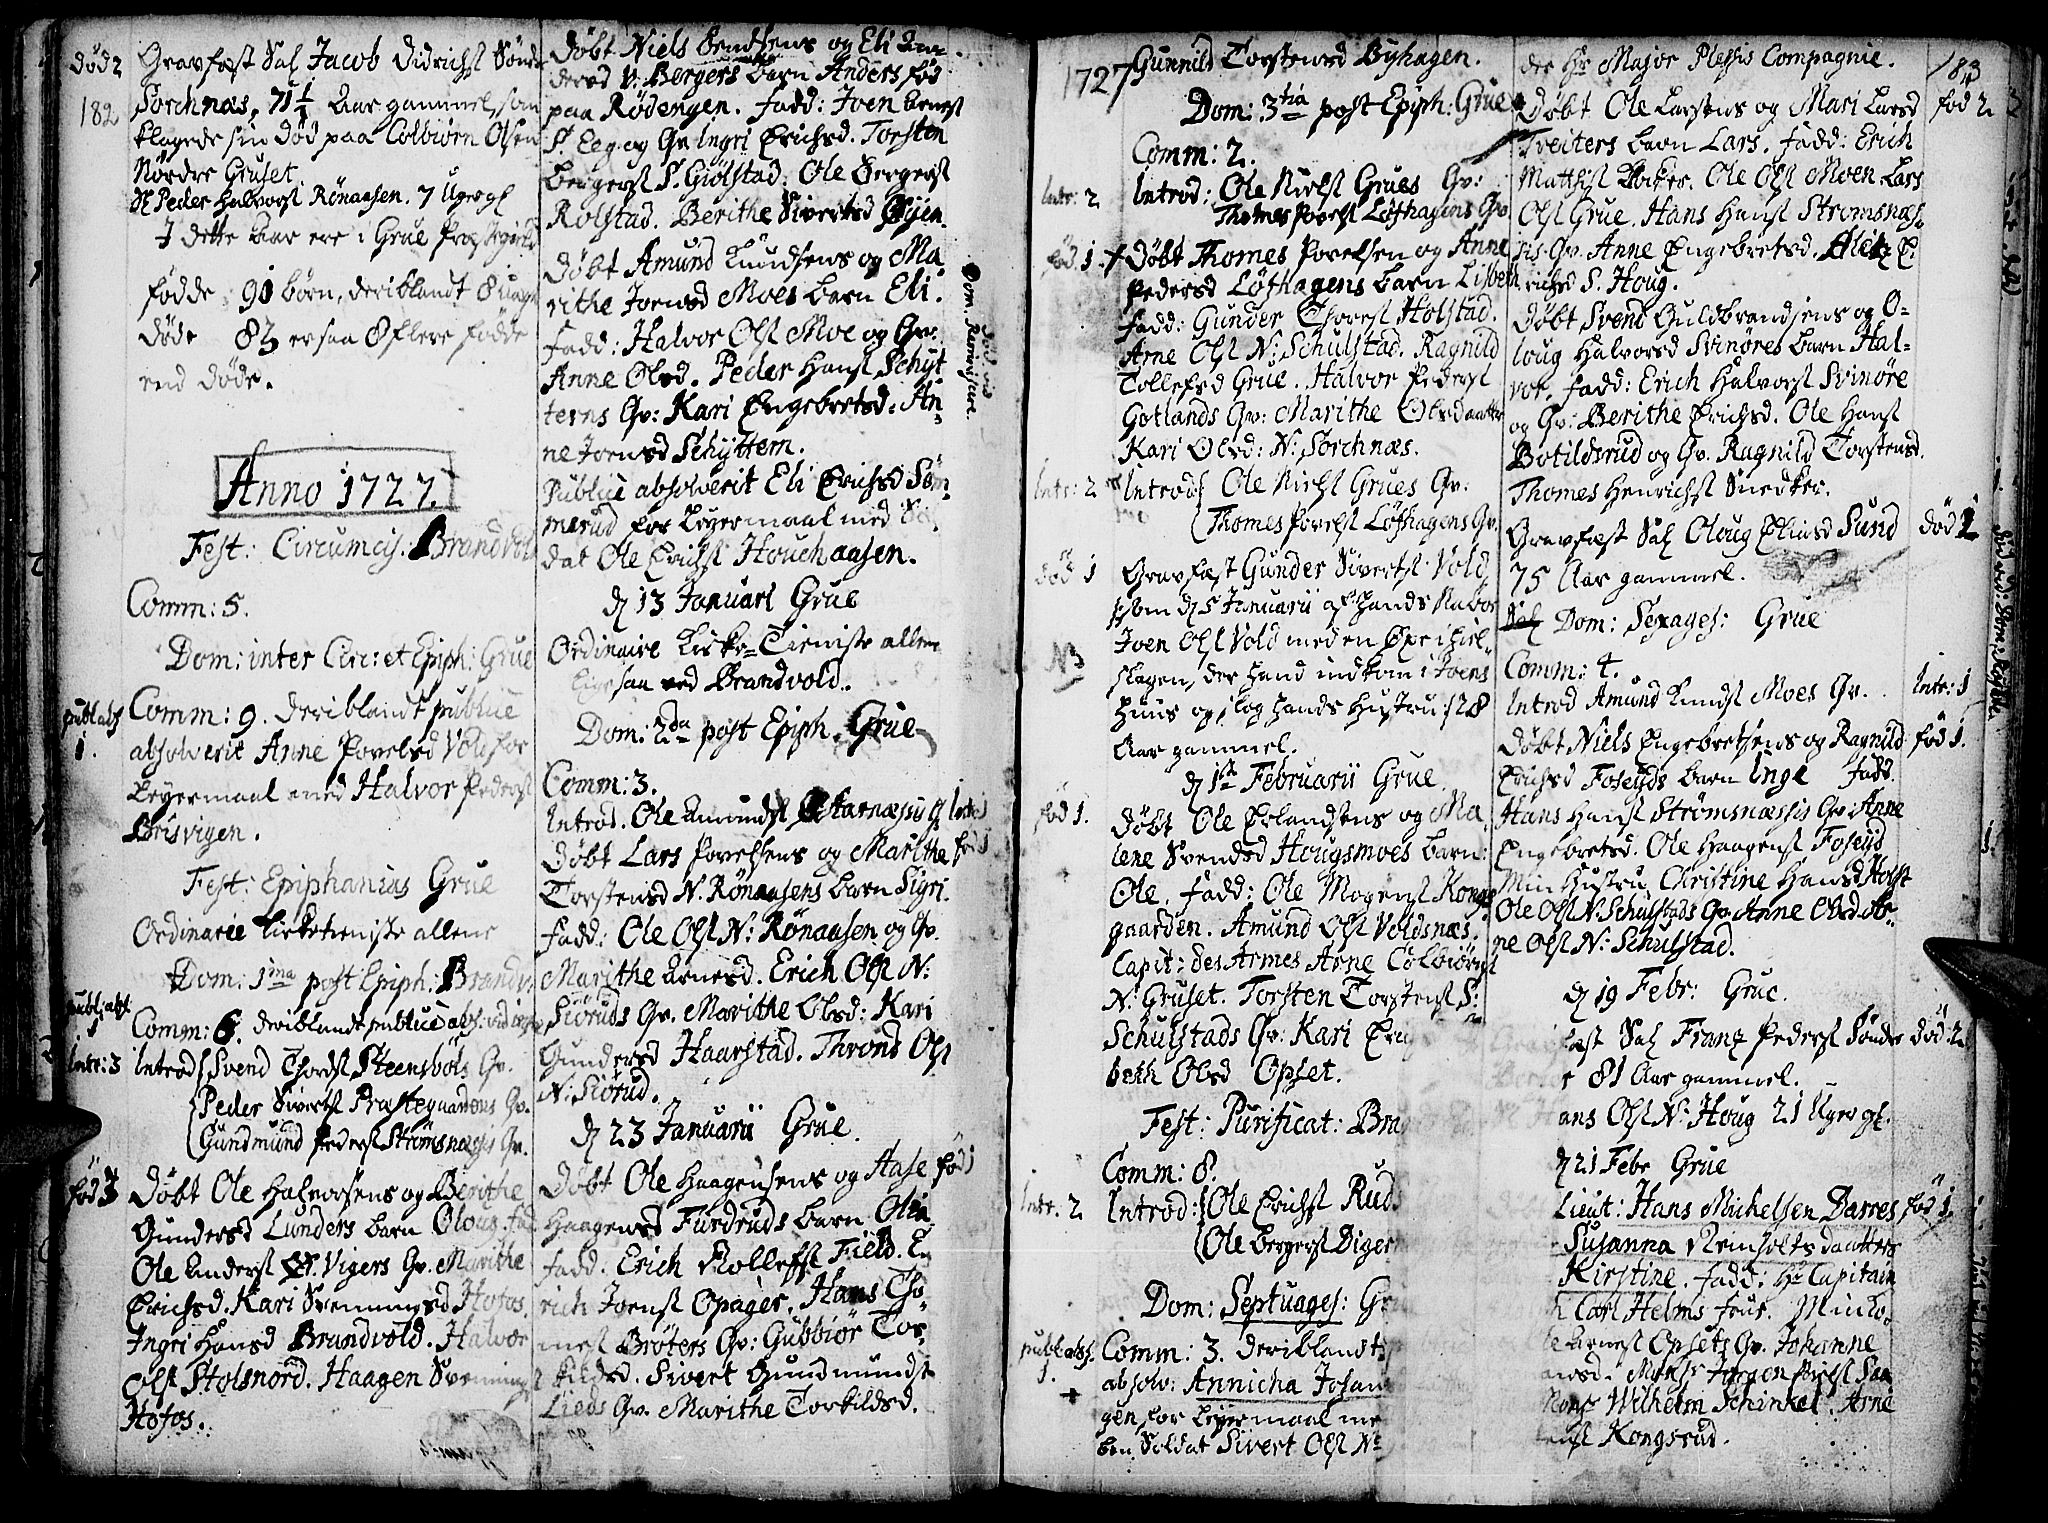 død 2
182
Gravfæst Sal Jacob Didrichs Sønd
Sorchnæs, 71 1/2 Aar gammel, som
klagede sin død paa Colbiørn Olsen
Nordre Gruset
S Peder Halvors Rønaasen. 7 Uger gl
I dette Aar ere i Grue Præstegield
fødde 91 børn, deriblandt 8 uægte
døde 83 er saa 8 flere fødde
end døde.
Anno 1727.
Fest: Circumcis: Brandvold
Comm: 5.
Dom: inter Circ: et Epiph: Grue
publ abs
1.
Comm: 9. deriblandt publice
absolverit Anne Povelsd Vold for
Leyermaal med Halvor Peders
Brisvigen.
Fest: Epiphanias Grue
Ordinarie Kirketieniste allene
Dom: 1ma post Epiph. Brandv
publ: abs
1
Comm: 6. deriblandt publice abs: vid
Intr: 3
Introd Svend Thords Steensbøls Qv.
Peder Siverts Præstegaardens Qv.
Gundmund Peders Strømsnæssis Qv.
fød 3
Døbt Ole Halvorsens og Berithe
Gundersd Lunders barn Oloug. fad
Ole Anders Vigers Qv. Marithe
Erichsd. Kari Svenningsd Hofos.
Ingri Hansd Brandvold. Halvor
Ols Stolsnord. Haagen Svennings
Hofos.
Døbt Niels Bendsens og Eli An-
dersd V. Bergers barn Anders fød
paa Rødengen. fadd: Joen Arnes
S. Eeg og Qv Ingri Erichsd. Torsten
Bergers S. Giølstad. Ole Bergers
Rolstad. Berithe Sivertsd Øijen.
Døbt Amund Knudsens og Ma
rithe Joensd Moes barn Eli.
fadd: Halvor Ols Moe og Qv:
Anne Olsd. Peder Hans Schyt
terns Qv: Kari Engebretsd: An
ne Joensd Schyttern.
Publicè absolverit Eli Erichsd Søm
merud for Leyermaal med Sol
dat Ole Erichs Houchaasen.
d 13 Januari Grue
Ordinaire Kirke-Tieniste allene
ligesaa ved Brandvold.
Dom: 2da post Epiph. Grue
Comm: 3.
Introd. Ole Amunds Skarnæssis Q Intr: 1
Døbt Lars Povelsens og Marithe fød 1
Torstensd N. Rønaasens barn Sigri.
fadd: Ole Ols N: Rønaasen og Qv.
Marithe Arnesd. Erich Ols N:
Siøruds Qv. Marithe Olsd: Kari
Gundersd Haarstad. Thrond Ols
N: Siørud.
d 23 Januarii Grue.
Døbt Ole Haagensens og Aase fød 1
Haagensd Furdruds barn Olia
fadd. Erich Rolleffs Field. E
rich Joens Opager. Hans Tho
mes Brøters Qv: Gubbiør Tor
kildsd. Sivert Gundmunds
Lieds Qv. Marithe Torkildsd.
1727
Gunnild Torstensd Byhagen.
Dom: 3tia post Epiph: Grue
Comm: 2.
Intr: 2
Introd: Ole Niels Grues Qv:
Thomes Povels Løfhagens Qv
fød 1. +
Døbt Thomes Povelsen og Anne
Pedersd Løfhagens barn Lisbeth
fadd: Gunder Thores Holstad.
Arne Ols N: Schulstad. Ragnild
Tollefsd Grue. Halvor Peders
Gotlands Qv: Marithe Olsdaatter
Kari Olsd: N: Sorchnæs.
Intr: 2
Introd Ole Niels Grues Qv:
Thomes Povels Løfhagens Qv.
død 1
Gravfæst Gunder Siverts Vold
som d 5 Januarii af hands Nabo
Joen Ols Vold med en Øxe ihiel
slagen, der hand indkom i Joens
Huus og slog hands Hustru: 28
Aar gammel.
NB
d 1st Februarii Grue
fød 1.
Døbt Ole Erlandsens og Ma
lene Svendsd Hougsmoes barn:
Ole. fadd: Ole Mogens Kongs
gaarden. Amund Ols Voldsnæs.
Capit: des Armes Arne Colbiørns
N: Gruset. Torsten Torstens S:
Schulstads Qv: Kari Eri
beth Olsd Opset.
Fest: Purificat: Bra
Comm: 8.
Intr: 2
Introd: Ole Erichs Ruds
Ole Bergers Diger
Dom: Septuages: Gr
publ: abs.
1.
+
Comm: 3. deriblandt
absolv: Annicha Johan
gen for Leyermaal me
ben Soldat Sivert Ols N
der Hr Major Plessis Compagnie.
183
fød 2.
Døbt Ole Larsens og Mari Larsd
Treiters barn Lars. fadd: Erich
Matthis Bocker. Ole Ols Moen. Lars
Ols Grue. Hans Hans Strømsnæs
sis Qv. Anne Engebretsd. Alet E
richsd S. Houg.
Døbt Svend Guldbrandsens og O-
loug Halvorsd Svinøres barn Hal-
vor. fadd: Erich Halvors Svinøre
og Qv: Berithe Erichsd. Ole Hans
Botildsrud og Qv. Ragnild Torstensd.
Thomes Henrichs Snedker.
Gravfæst Sal Oloug Eliasd Sund død 1
75 Aar gammel.
Dom: Sexages: Grue
Comm: 4.
Introd Amund Knuds Moes Qv. Intr: 1
Døbt Niels Engebretsens og Ragnild fød 1.
Erichsd Foseyds barn Inge fadd.
Hans Hans Strømsnæssis Qv: Anne
Engebretsd. Ole Haagens Foseyd
Min Hustru Christine Hansd Holst
Ole Ols N. Schulstads Qv. Anne Olsd. Ar
ne Ols N: Schulstad.
d 19 Febr: Grue.
fæst Sal Franz Peders Sønder død: 2.
r 81 Aar gammel.
ans Ols N: Houg 21 Uger gl.
d 21 Febr Grue
Lieut: Hans Michelsen Darres fød 1.
Susanna Remholtsdaatters
Kirstine. fadd: Hr Capitain
h Carl Helms frue. Min Ko
le Arnes Opsets Qv. Johanne
nsd. Mons Jørgen Povels Saa
Mons Wilhelm Schinkel. Arne
tens Kongsrud.